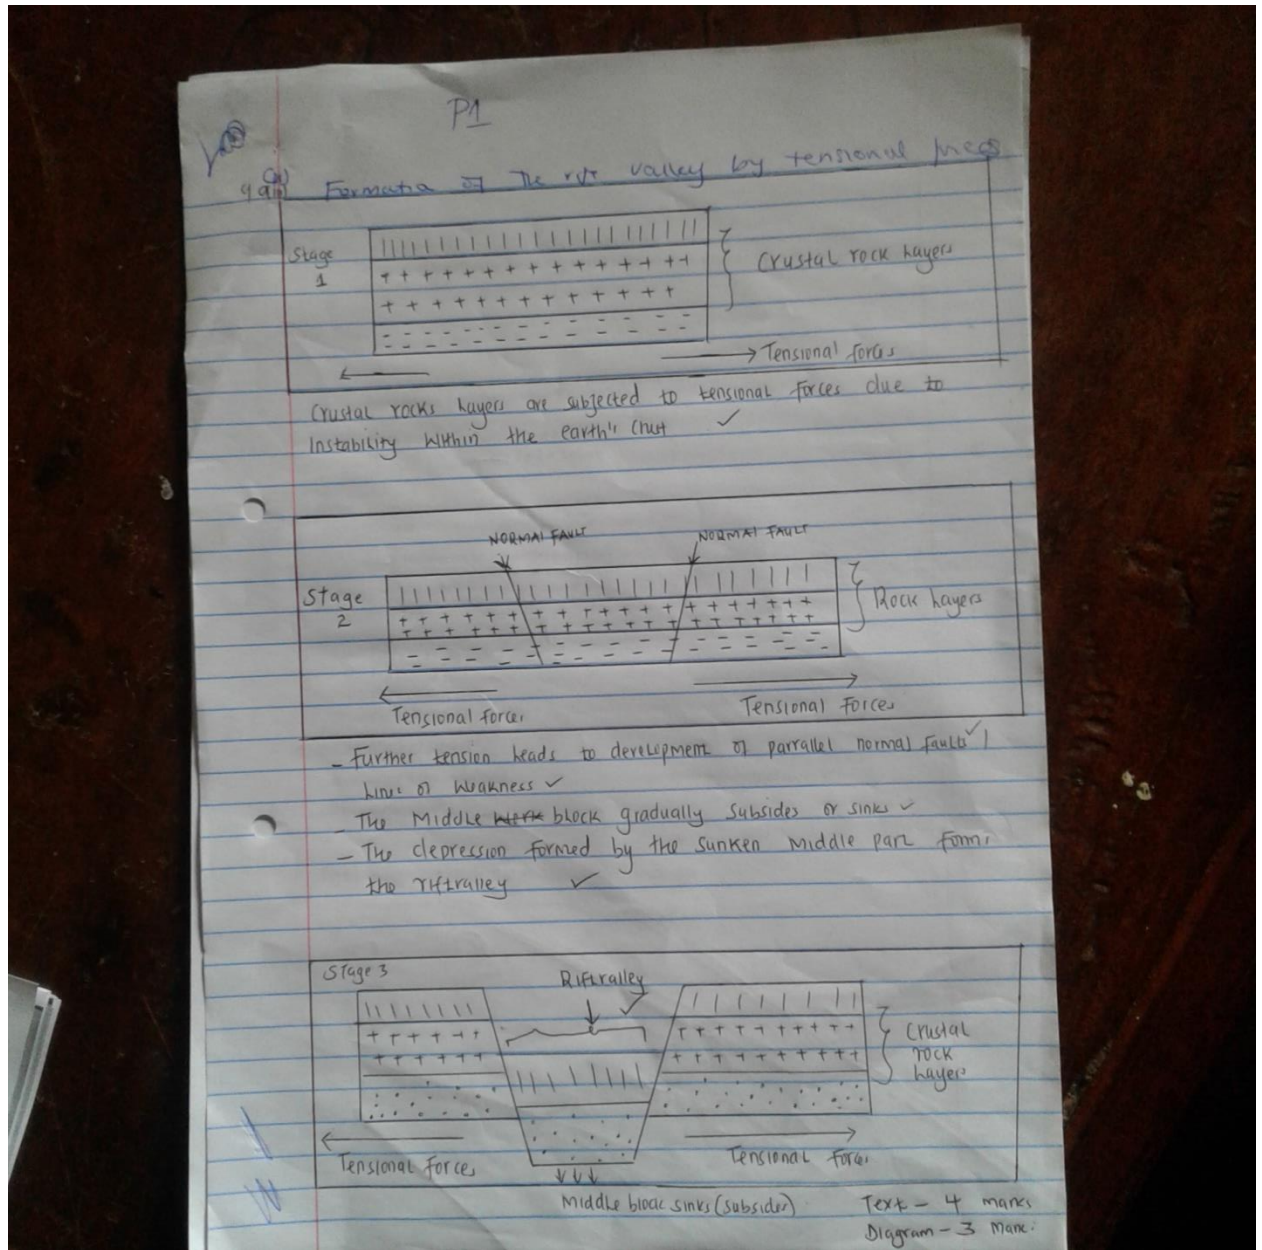 P1
Formatia of The rift valley by tensional
Stage
1
Crustal rock Layers
Tensional forces
Crustal rocks Layers are subjected to tensional forces due to
Instability Within the earth's Crust
NORMAl FAULT
NORMAl FAULT
Stage
2
Rock Layers
Tensional forces
Tensional forces
- Further tension Leads to development of parrallel normal faults /
Lines of Weakness
- The Middle block gradually subsides or sinks
- The depression formed by the sunken middle part forms
the riftvalley
Stage 3
Riftvalley
Crustal
rock
Layers
Tensional forces
Tensional forces
Middle block sinks (subsides)
Text - 4 marks
Diagram - 3 Mark.